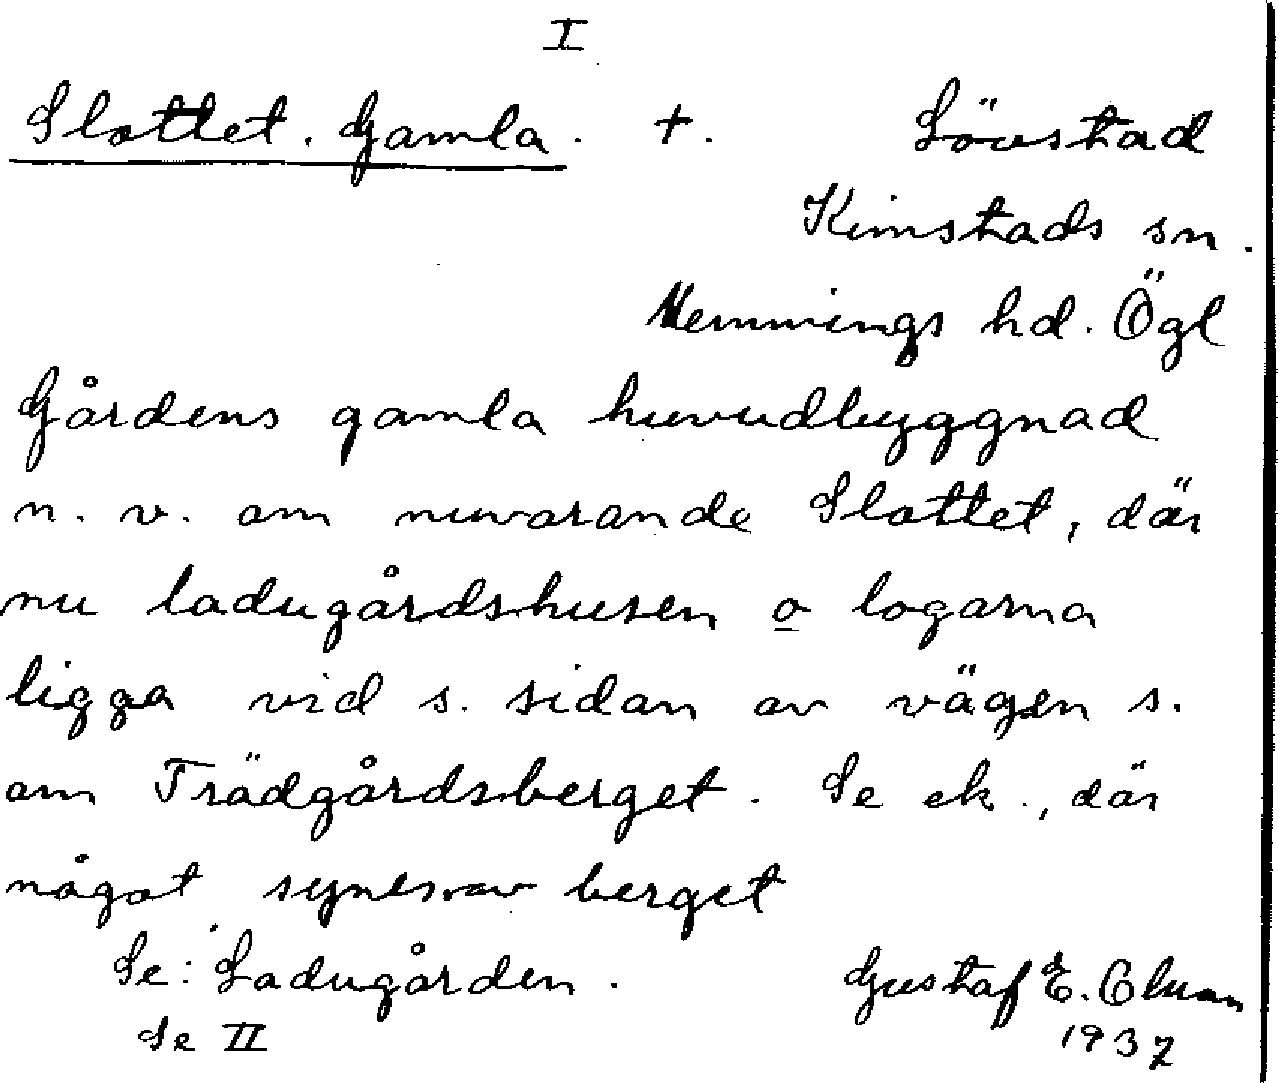 I
Slottet. Gamla. +. Lövstad
Kimstads sn.
Memmings hd. Ögl
Gårdens gamla huvudbyggnad
n. v. om nuvarande Slottet, där
nu ladugårdshusen o logarna
ligga vid s. sidan av vägen s.
om Trädgårdsberget. Se ek., där
något synes av berget
Se: Ladugården. Gustaf E.
Se II 1937